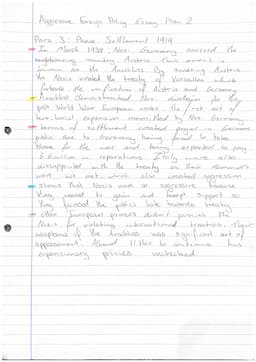 Aggressive Foreign Policy Essay Plan 2
Para 3: Peace Settlement 1919
- In March 1938, Nazi Germany annexed the
neighbouring country Austria. This event is
known as the Anschluss. By annexing Austria
the Nazis violated the Treaty of Versailles which
forbade the unification of Austria and Germany
- Anschluss demonstrated Nazi disregard for the
post World War European order. The 1st act of
territorial expansion committed by Nazi Germany
- terms of settlement created anger in German
public due to Germany being forced to take
blame for the war and being expected to pay
6.6 million in reparations. Italy were also
disappointed with the treaty as their demands
were not met which also created aggression
- shows that Nazis were so aggressive because
they wanted to gain and keep support so
they focused the public's hate towards treaty
- other European powers didn't punish the
Nazis for violating international treaties. Their
acceptance of the Anschluss was significant act of
appeasement. Allowed Hitler to continue his
expansionary policies unchecked.